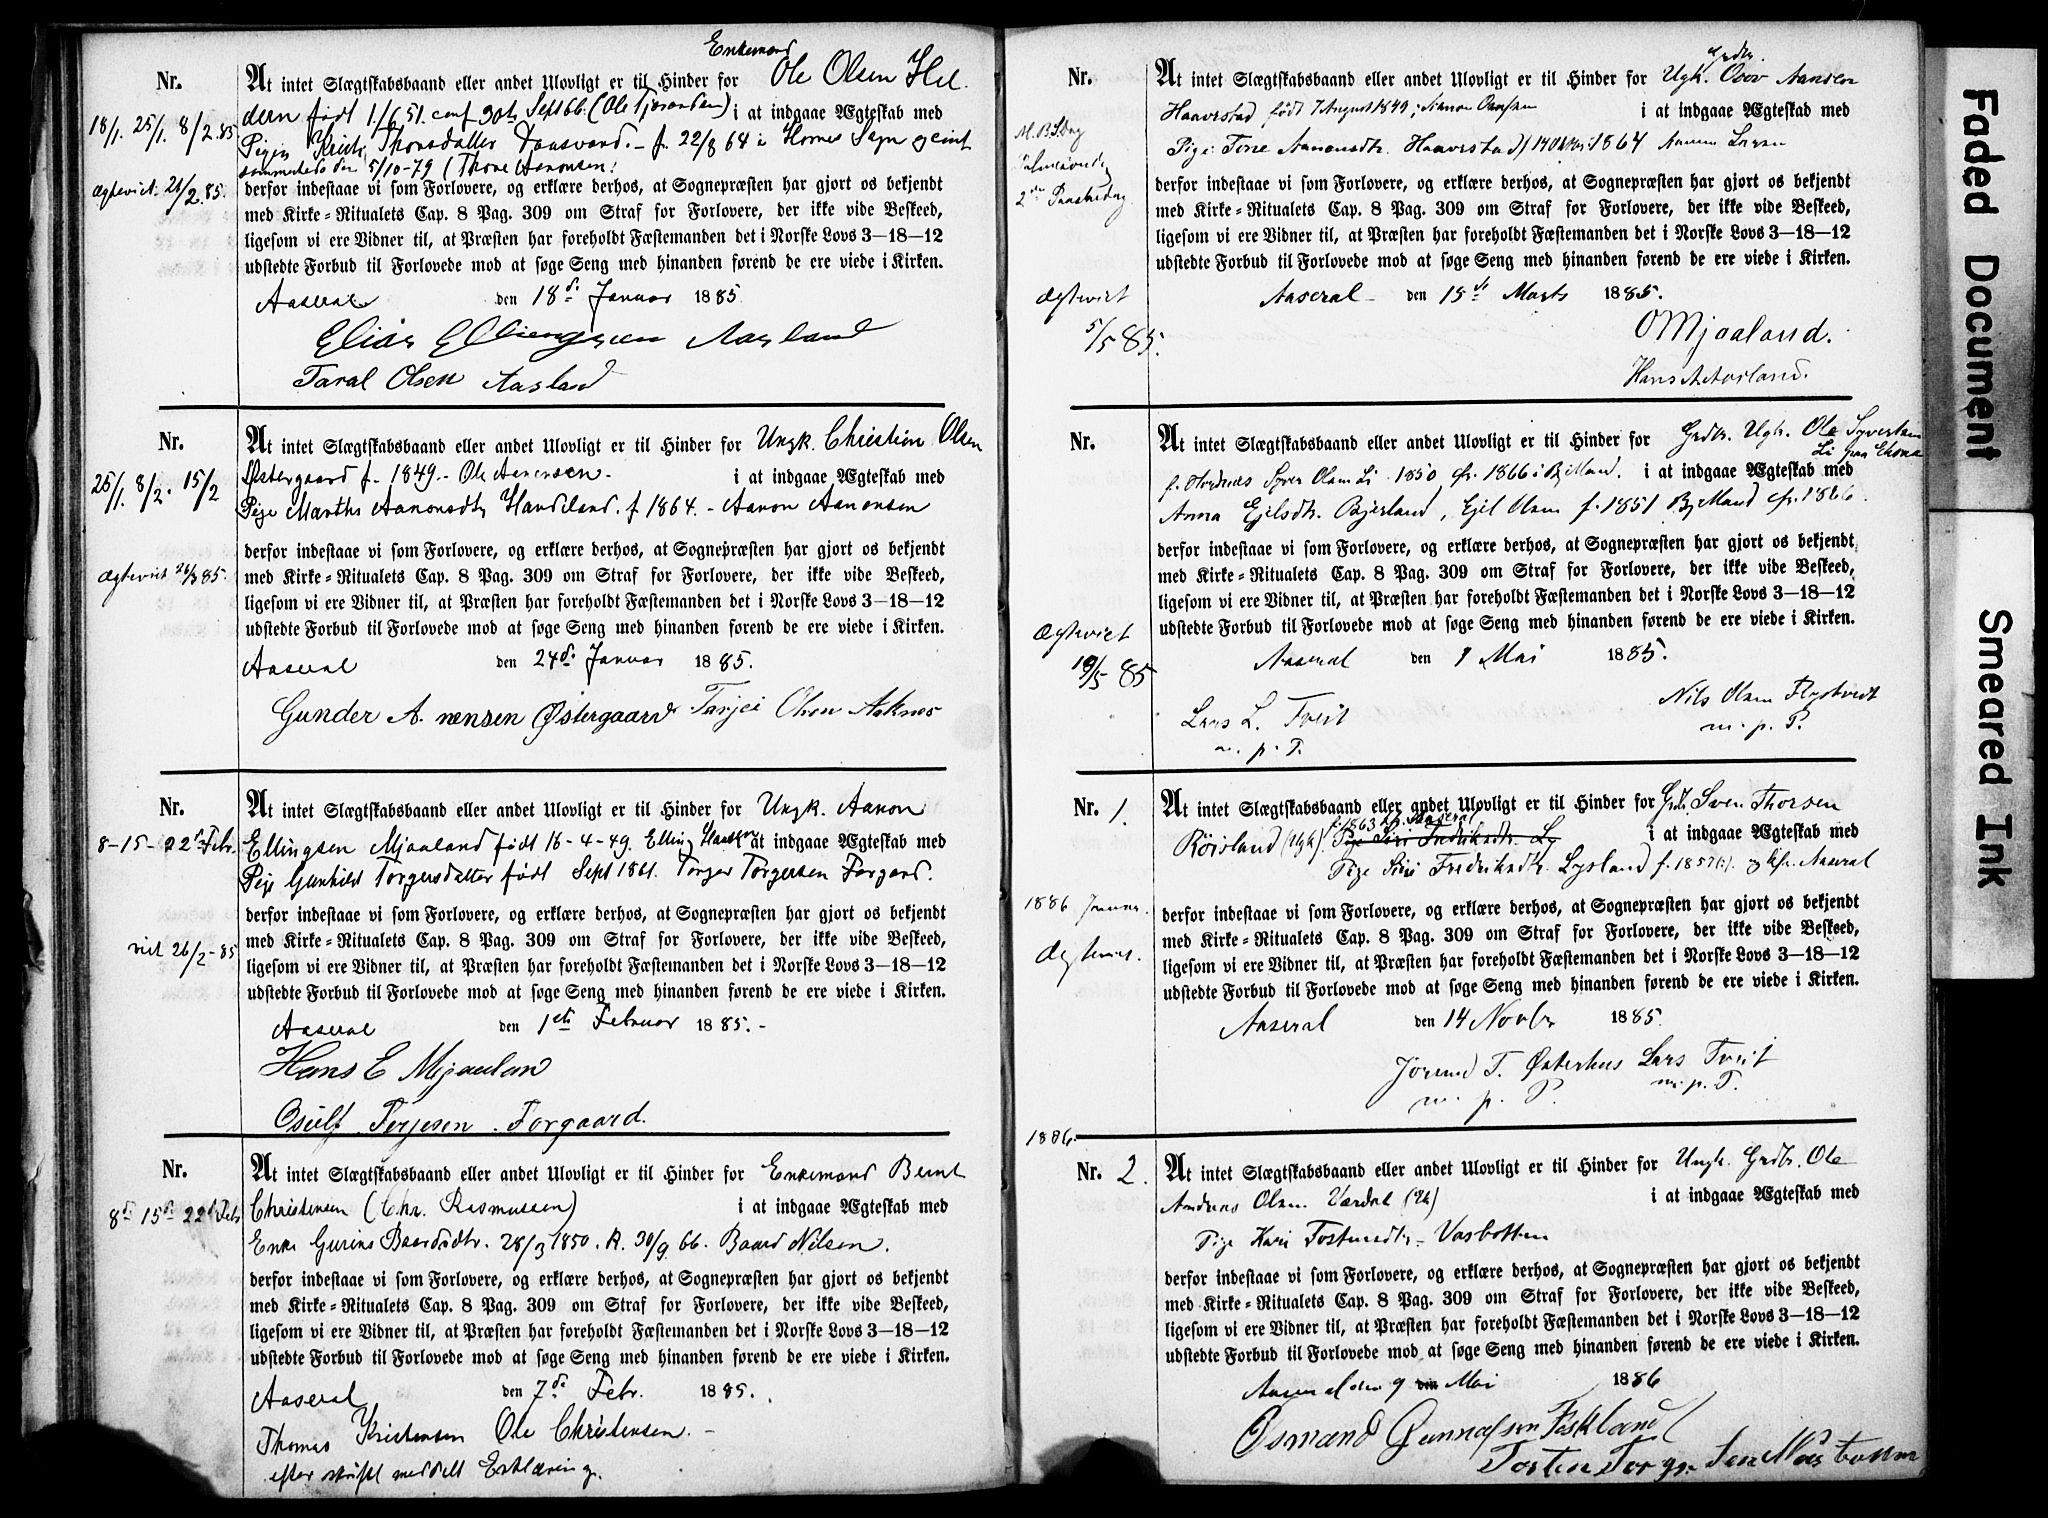 Enkemand
Nr. At intet Slægtskabsbaand eller andet Ulovligt er til Hinder for Ole Olsen Hel-
18/1. 25/1. 8/2.85 dern født 1/6 51. conf 30te Sept 66 (Ole ) i at indgaae Ægteskab med
Pigen Thorsdatter f. 22/8 64 i Hornes Sogn
sammesteds den 5/10-79 (Thore Aanonsen)
ægteviet 26/2.85. derfor indestaae vi som Forlovere, og erklære derhos, at Sognepræsten har gjort os bekjendt
med Kirke-Ritualets Cap. 8 Pag. 309 om Straf for Forlovere, der ikke vide Beskeed,
ligesom vi ere Vidner til, at Præsten har foreholdt Fæstemanden det i Norske Lovs 3—18—12
udstedte Forbud til Forlovede mod at søge Seng med hinanden førend de ere viede i Kirken.
Aaseral den 18de Januar 1885
Elias Aasland
Taral Olsen Aasland
Nr. At intet Slægtskabsbaand eller andet Ulovligt er til Hinder for Ungk. Christian Olsen
25/1. 8/2. 15/2 Østergaard f. 1849. - Ole Aanensen - i at indgaae Ægteskab med
Pige Marthe Aanonsdtr Haadeland. f 1864. - Aanon Aanonsen
derfor indestaae vi som Forlovere, og erklære derhos, at Sognepræsten har gjort os bekjendt
ægteviet 26/3 85. med Kirke-Ritualets Cap. 8 Pag. 309 om Straf for Forlovere, der ikke vide Beskeed,
ligesom vi ere Vidner til, at Præsten har foreholdt Fæstemanden det i Norske Lovs 3—18—12
udstedte Forbud til Forlovede mod at søge Seng med hinanden førend de ere viede i Kirken.
Aaseral den 24de Januar 1885.
Gunder A. nensen Østergaard Tarjei Olsen Aaknes
Nr. At intet Slægtskabsbaand eller andet Ulovligt er til Hinder for Ungk. Aanon
8-15-22de Febr. Ellingsen Mjaaland født 16-4-49. Elling Hansen i at indgaae Ægteskab med
Pige Gunhild Torgersdatter født Sept 1861. Torger Torgersen Forgard.
derfor indestaae vi som Forlovere, og erklære derhos, at Sognepræsten har gjort os bekjendt
viet 26/2-85 med Kirke-Ritualets Cap. 8 Pag. 309 om Straf for Forlovere, der ikke vide Beskeed,
ligesom vi ere Vidner til, at Præsten har foreholdt Fæstemanden det i Norske Lovs 3—18—12
udstedte Forbud til Forlovede mod at søge Seng med hinanden førend de ere viede i Kirken.
Aaseral den 1ste Februar 1885. -
Hans E Mjaalan
Osulf Terjesen. Forgaard.
Nr. At intet Slægtskabsbaand eller andet Ulovligt er til Hinder for Enkemand Bernt
8de 15de 22de Febr Christensen (Chr. Rasmussen) i at indgaae Ægteskab med
Enke Gurine Baardsdtr. 28/3 1850. 30/9 66. Baard Nilsen.
derfor indestaae vi som Forlovere, og erklære derhos, at Sognepræsten har gjort os bekjendt
med Kirke-Ritualets Cap. 8 Pag. 309 om Straf for Forlovere, der ikke vide Beskeed,
ligesom vi ere Vidner til, at Præsten har foreholdt Fæstemanden det i Norske Lovs 3—18—12
udstedte Forbud til Forlovede mod at søge Seng med hinanden førend de ere viede i Kirken.
Aaseral den 7de Febr. 1885.
Thomas Kristensen Ole Christensen. -
efter skriftl meddelt Erklæring.
Grdbr.
Nr. At intet Slægtskabsbaand eller andet Ulovligt er til Hinder for Ugk. Osov Aansen
Haaverstad født 7 August 1849, i at indgaae Ægteskab med
Pige Tone Aanonsdtr. Haaverstad 1864 Aanon Larsen
2den Paaskedag. derfor indestaae vi som Forlovere, og erklære derhos, at Sognepræsten har gjort os bekjendt
med Kirke-Ritualets Cap. 8 Pag. 309 om Straf for Forlovere, der ikke vide Beskeed,
ligesom vi ere Vidner til, at Præsten har foreholdt Fæstemanden det i Norske Lovs 3—18—12
udstedte Forbud til Forlovede mod at søge Seng med hinanden førend de ere viede i Kirken.
ægteviet Aaseral - den 15de Marts 1885.
5/5 85. O Mjaaland.
Hans A. Aasland.
Nr. At intet Slægtskabsbaand eller andet Ulovligt er til Hinder for Grdbr. Ugk. Ole Syversen
Li paa
Syver Olsen Li 1850, cfr. 1866 i Bjelland. i at indgaae Ægteskab med
Anna Ejelsdtr. Bjerland, Ejel Olsen f. 1851 Bjelland cfr. 1866.
derfor indestaae vi som Forlovere, og erklære derhos, at Sognepræsten har gjort os bekjendt
med Kirke-Ritualets Cap. 8 Pag. 309 om Straf for Forlovere, der ikke vide Beskeed,
ligesom vi ere Vidner til, at Præsten har foreholdt Fæstemanden det i Norske Lovs 3—18—12
ægteviet udstedte Forbud til Forlovede mod at søge Seng med hinanden førend de ere viede i Kirken.
/5 85 Aaseral den 1 Mai 1885.
Lars L. Tveit Nils Olsen
m. p. P. m. p. P.
Nr. 1. At intet Slægtskabsbaand eller andet Ulovligt er til Hinder for Grdbr. Sven Thorsen
f. 1863 Aaseral
Röisland (Ugk). Pige Siri Fredriksdtr. Ly i at indgaae Ægteskab med
Pige Siri Fredriksdtr. Lygland f. 1857 og kfr. Aaseral
1886 Januar. derfor indestaae vi som Forlovere, og erklære derhos, at Sognepræsten har gjort os bekjendt
ægteviet. med Kirke-Ritualets Cap. 8 Pag. 309 om Straf for Forlovere, der ikke vide Beskeed,
ligesom vi ere Vidner til, at Præsten har foreholdt Fæstemanden det i Norske Lovs 3—18—12
udstedte Forbud til Forlovede mod at søge Seng med hinanden førend de ere viede i Kirken.
Aaseral den 14 Novbr 1885.
Jörund T. Østerhus Lars Tveit
m. p. P. m. p. P.
1886.
Nr. 2. At intet Slægtskabsbaand eller andet Ulovligt er til Hinder for Ungk. Grdbr. Ole
Andreas Olsen i at indgaae Ægteskab med
Pige Kari Vasbotten
derfor indestaae vi som Forlovere, og erklære derhos, at Sognepræsten har gjort os bekjendt
med Kirke-Ritualets Cap. 8 Pag. 309 om Straf for Forlovere, der ikke vide Beskeed,
ligesom vi ere Vidner til, at Præsten har foreholdt Fæstemanden det i Norske Lovs 3—18—12
udstedte Forbud til Forlovede mod at søge Seng med hinanden førend de ere viede i Kirken.
Aaseral den 9 den Mai 1886
Osmand Gunnufsen
Faded Document
Smeared Ink